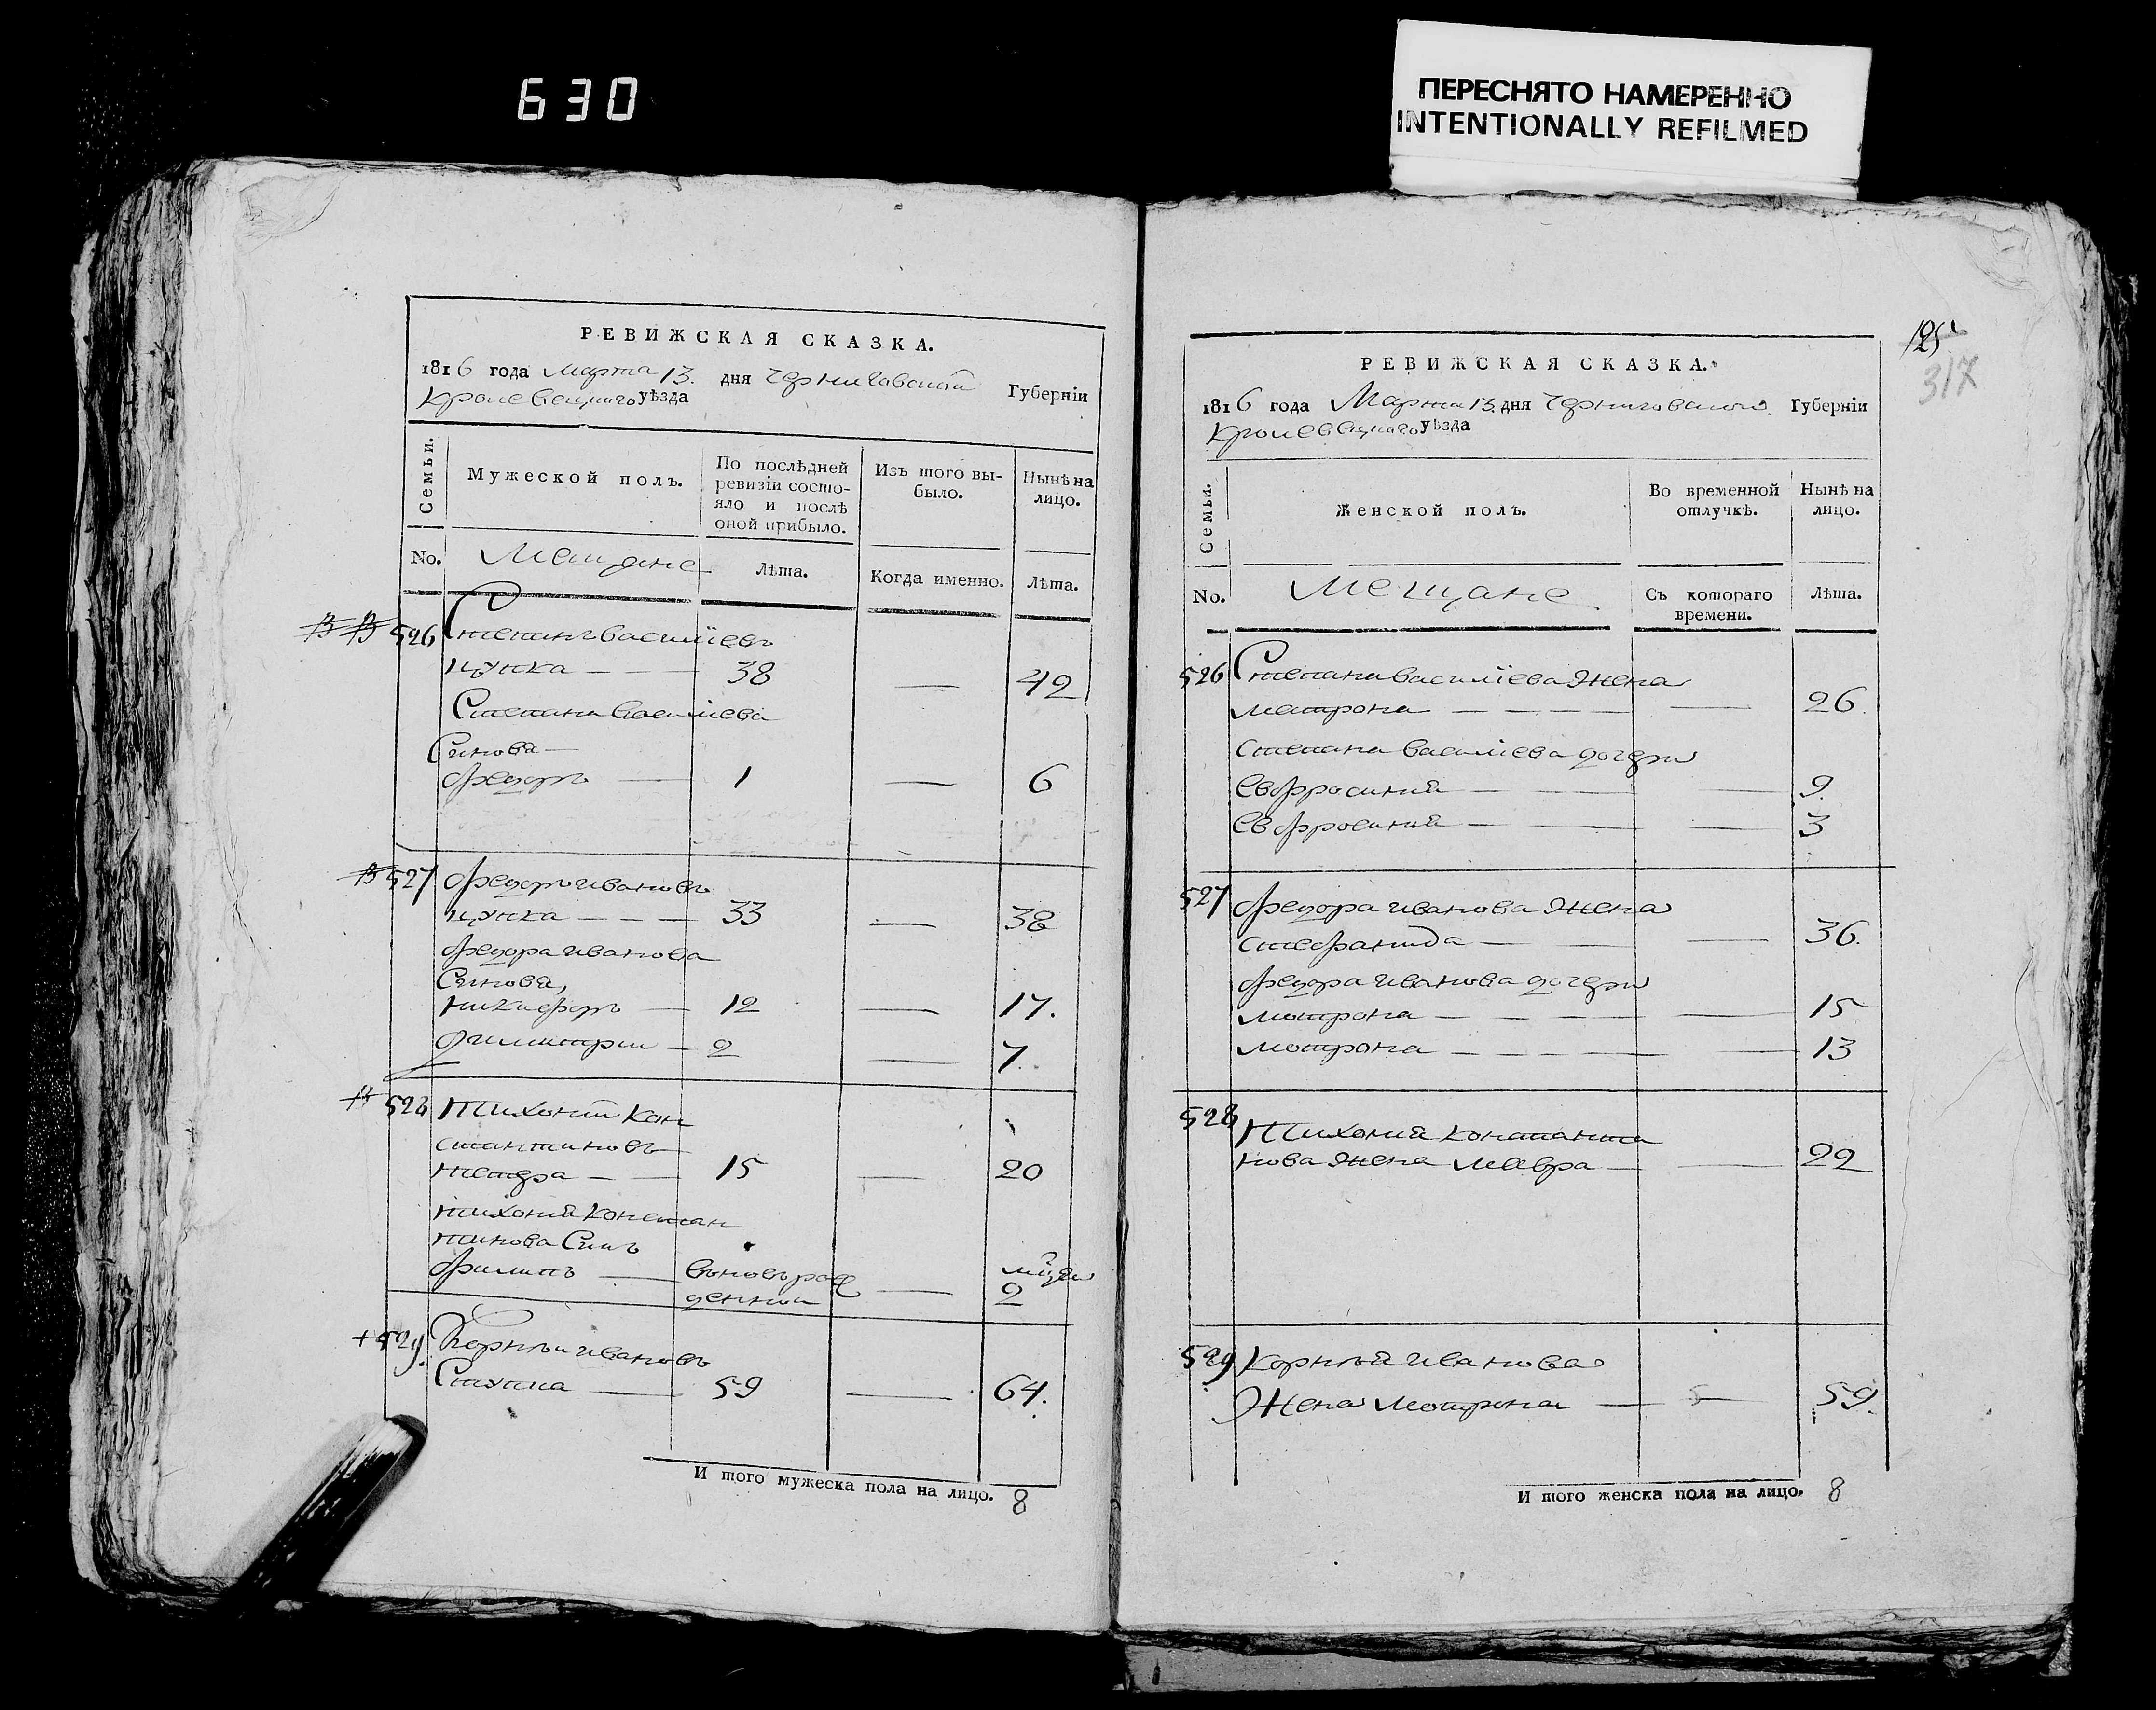 630
ПЕРЕСНЯТО НАМЕРЕННО
INTENTIONALLY REFILMED
РЕВИЖСКАЯ СКАЗКА.
1816 года Марта 13. дня Черниговской Губерніи
Кролевецкаго уѣзда
Семьи.
Мужеской полъ.
По послѣдней ревизіи состо-яло и послѣ оной прибыло.
Изъ того вы-было.
Нынѣ на лицо.
No.
Мещане
Лѣта.
Когда именно.
Лѣта.
526 Степанъ Василіевъ
цупка — — — 38 — 42
Степана Василіева
Синовя —
Федоръ — 1 — 6
527 Федоръ Ивановъ
цупка — — — 33 — 38
Федора Иванова
Синовя,
Никифоръ — 12 — 17.
Димитрии — 2 — 7.
528 Тихоний Кон
стантиновъ
— — 15 — 20
Тихония Констан
тинова Синъ
Филипъ — вновърож — мцей
денний 2
+ 529. Корнѣи Ивановъ
Ступка — 59 — 64.
И того мужеска пола на лицо. 8
125
317
РЕВИЖСКАЯ СКАЗКА.
1816 года Марта 13. дня Черниговской Губерніи
Кролевецкаго уѣзда
Семьи.
Женской полъ.
Во временной отлучкѣ.
Нынѣ на лицо.
No.
Мещане
Съ котораго времени.
Лѣта.
526 Степана Василіева Жена
Мотрона — — — — — 26.
Степана Василіева дочери
Евфросиния — — — — 9.
Евфросиния — — — — 3
527 Федора Иванова Жена
Стефанида — — — 36.
Федора Иванова дочери
Мотрона — — — — — 15
Мотрона — — — — — 13
528 Тихония Константи
нова Жена Мавра — — 22
529 Корнѣя Иванова
Жена Мотрона — — 59.
И того женска пола на лицо. 8